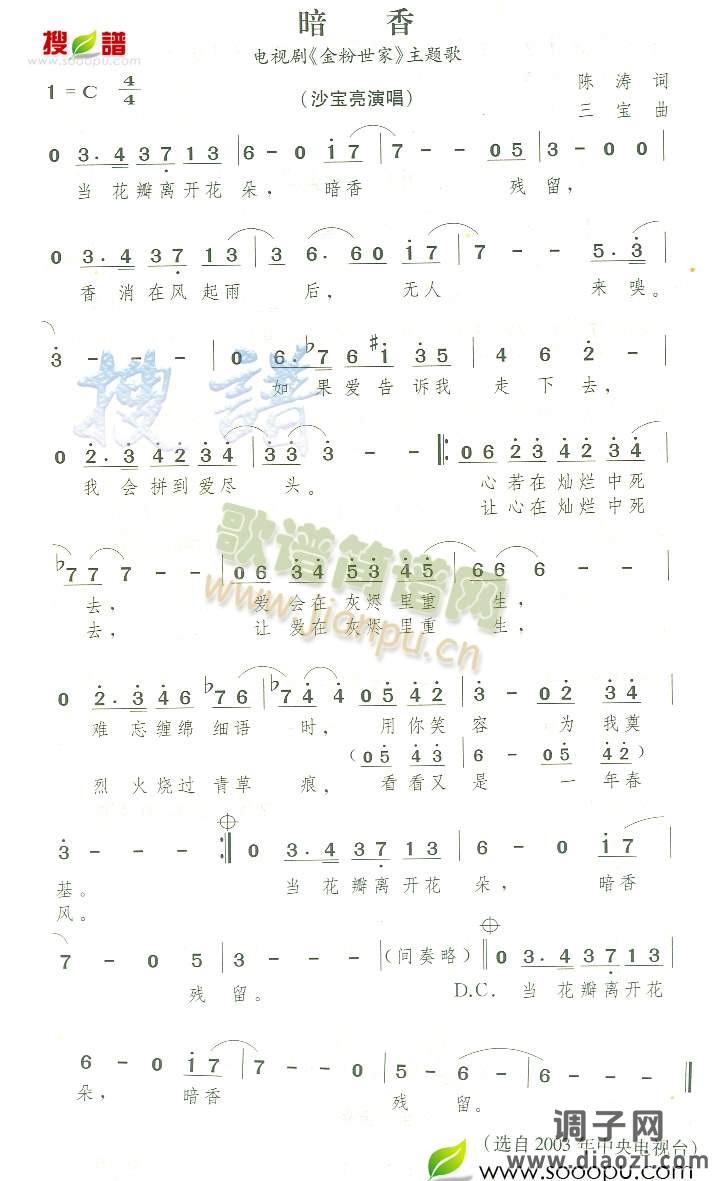 暗 香
搜 譜
www.sooopu.com
电视剧《金粉世家》主题歌
1 = C 4/4
(沙宝亮演唱)
陈 涛 词
三 宝 曲
0 3. 4 3 7 1 3 | 6 - 0 i 7 | 7 - - 0 5 | 3 - 0 0 |
当 花 瓣 离 开 花 朵, 暗 香 残 留,
0 3. 4 3 7 1 3 | 3 6. 6 0 i 7 | 7 - - 5. 3 |
香 消 在 风 起 雨 后, 无 人 来 嗅。
3 - - - | 0 6. ♭7 6 #i 3 5 | 4 6 2 - |
如 果 爱 告 诉 我 走 下 去,
0 2. 3 4 2 3 4 | 3 3 3 - - ‖: 0 6 2 3 4 2 3 4 |
我 会 拼 到 爱 尽 头。 心 若 在 灿 烂 中 死
让 心 在 灿 烂 中 死
♭7 7 7 - - | 0 6 3 4 5 3 4 5 | 6 6 6 - - |
去, 爱 会 在 灰 烬 里 重 生,
去, 让 爱 在 灰 烬 里 重 生,
0 2. 3 4 6 ♭7 6 | ♭7 4 4 0 5 4 2 | 3 - 0 2 3 4 |
难 忘 缠 绵 细 语 时, 用 你 笑 容 为 我 奠
( 0 5 4 3 | 6 - 0 5 4 2 )
烈 火 烧 过 青 草 痕, 看 看 又 是 一 年 春
3 - - - :‖ 0 3. 4 3 7 1 3 | 6 - 0 i 7 |
基。 当 花 瓣 离 开 花 朵, 暗 香
风。
7 - 0 5 | 3 - - - | (间奏略) ‖ 0 3. 4 3 7 1 3 |
残 留。 D.C. 当 花 瓣 离 开 花
6 - 0 i 7 | 7 - - 0 | 5 - 6 - | 6 - - - ‖
朵, 暗 香 残 留。
(选自 2003 年中央电视台)
搜 譜
歌谱简谱网
www.jianpu.cn
调子网
www.diaozi.com
www.sooopu.com